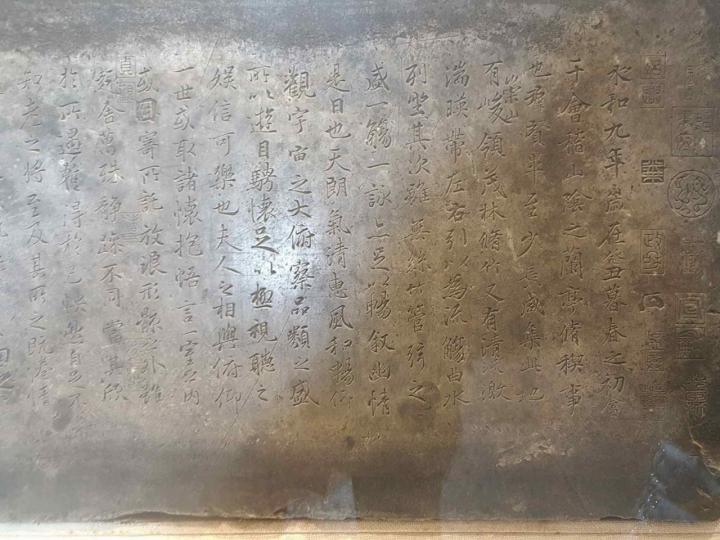 永和九年歲在癸丑暮春之初會
于會稽山陰之蘭亭脩稧事
也羣賢畢至少長咸集此地
有崇山峻領茂林脩竹又有清流激
湍暎帶左右引以為流觴曲水
列坐其次雖無絲竹管弦之
盛一觴一詠亦足以暢叙幽情
是日也天朗氣清惠風和暢仰
觀宇宙之大俯察品類之盛
所以遊目騁懷足以極視聽之
娛信可樂也夫人之相與俯仰
一世或取諸懷抱悟言一室之內
或因寄所託放浪形骸之外雖
趣舍萬殊靜躁不同當其欣
於所遇蹔得於己快然自足不
知老之將至及其所之既惓情